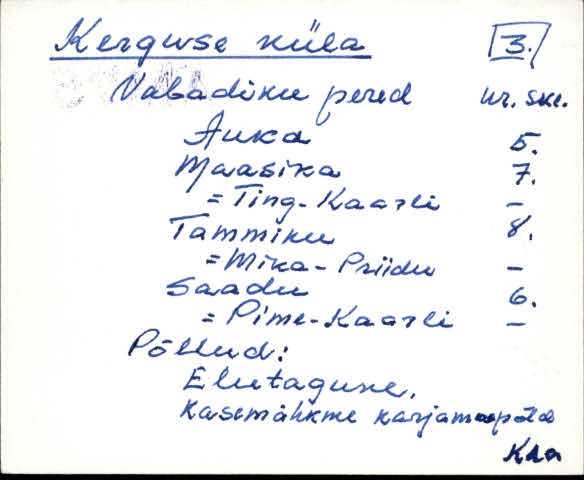 Kerguse küla 3.
Vabadiku pered nr. ske.
Auka 5.
Maasika 7.
= Ting-Kaarli –
Tammiku 8.
= Mika-Priidu –
Saadu 6.
= Pime-Kaarli –
Põllud:
Elutagune,
Kasemähkme karjamaapõld